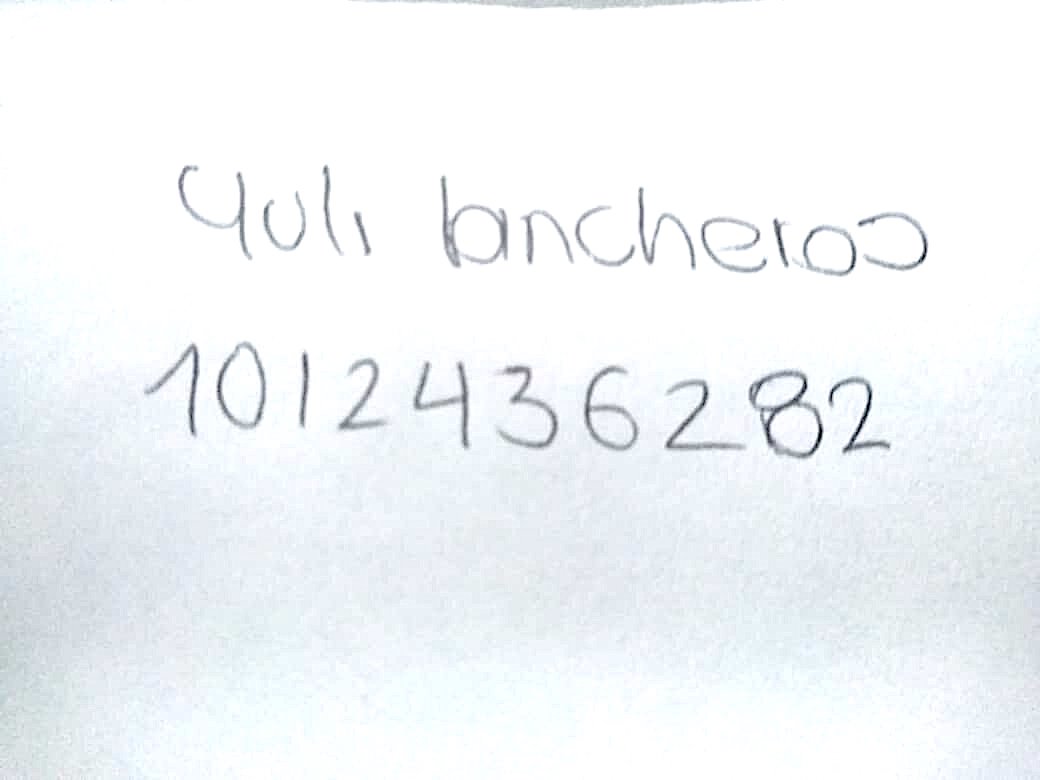 Yuli lancheros
1012436282